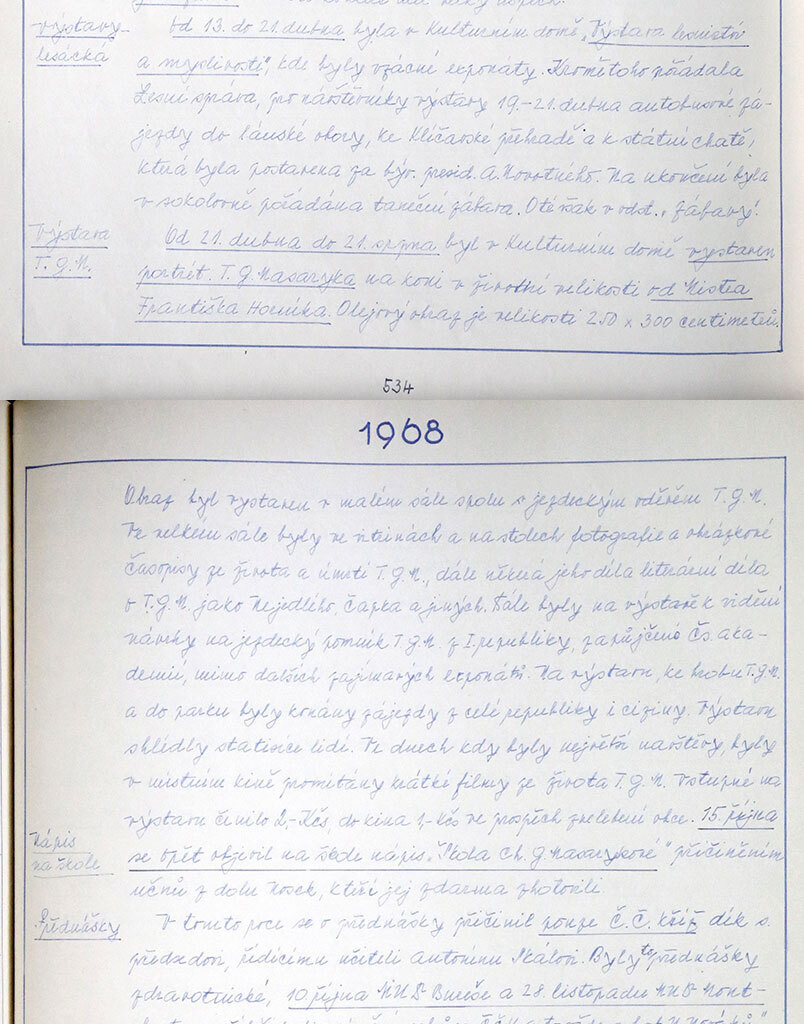 výstavy
lesácká
Od 13. do 21. dubna byla v Kulturním domě „Výstava lesnictví
a myslivosti", kde byly vzácné exponáty. Kromětoho pořádala
Lesní správa, pro návštěvníky výstavy 19.-21. dubna autobusové zá-
jezdy do lánské obory, ke Klíčavské přehradě a k státní chatě,
která byla postavena za býv. presid. A. Novotného. Na ukončení byla
v sokolovně pořádána taneční zábava. O té však v odst. „Zábavy".
Výstava
T. G. M.
Od 21. dubna do 21. srpna byl v Kulturním domě vystaven
portrét T. G. Masaryka na koni v životní velikosti od Mistra
Františka Horníka. Olejový obraz je velikosti 250 x 300 centimetrů.
534
1968
Obraz byl vystaven v malém sále spolu s jezdeckým oděvem T. G. M.
Ve velkém sále byly ve vitrinách a na stolech fotografie a obrázkové
časopisy ze života a úmrtí T. G. M., dále některá jeho díla literární díla
o T. G. M. jako Nejedlého, Čapka a jiných. Dále byly na výstavě k vidění
návrhy na jezdecký pomník T. G. M. z I. republiky, zapůjčeno Čs. aka-
demií, mimo dalších zajímavých exponátů. Na výstavu, ke hrobu T. G. M.
a do parku byly konány zájezdy z celé republiky i ciziny. Výstavu
shlédly statisíce lidí. Ve dnech kdy byly největší návštěvy, byly
v místním kině promítány krátké filmy ze života T. G. M. Vstupné na
výstavu činilo 2,- Kčs, do kina 1,- Kčs ve prospěch zvelebení obce. 15. října
Nápis
na škole
se opět objevil na škole nápis „Škola Ch. G. Masarykové" přičiněním
učňů z dolu Nosek, kteří jej zdarma zhotovili.
Přednášky
V tomto roce se o přednášky přičinil pouze Č. Č. kříž dík s.
předsedovi, řídícímu učiteli Antonínu Skálovi. Byly to přednášky
zdravotnické, 10. října MUDr a 28. listopadu MUDr